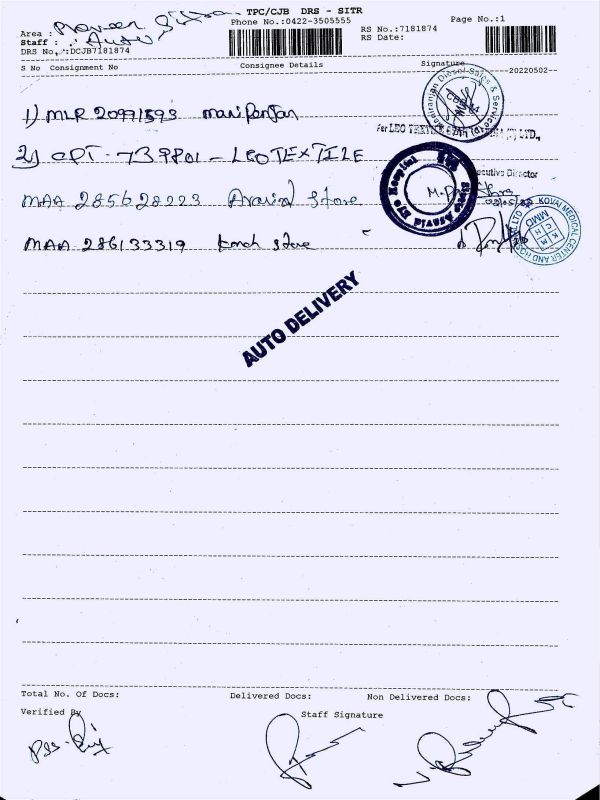 TPC/CJB DRS - SITR
Phone No.:0422-3505555
Page No.:1
Area : Praveen
Staff : Auto
RS No.:7181874
RS Date:
DRS No.:DCJB7181874
S No Consignment No Consignee Details Signature
20220502
1) MLR 20971593 maniranjan
2) CPT - 739801 - LEO TEXTILE
MAA 285628223 Aravind Store
MAA 286133319 kmch store
For LEO TEXTILE
Executive Director
Eye Hospital
KOVAI MEDICAL CENTER AND HOSPITAL LTD
KMCH
MMD
AUTO DELIVERY
Total No. Of Docs: Delivered Docs: Non Delivered Docs:
Verified By Staff Signature